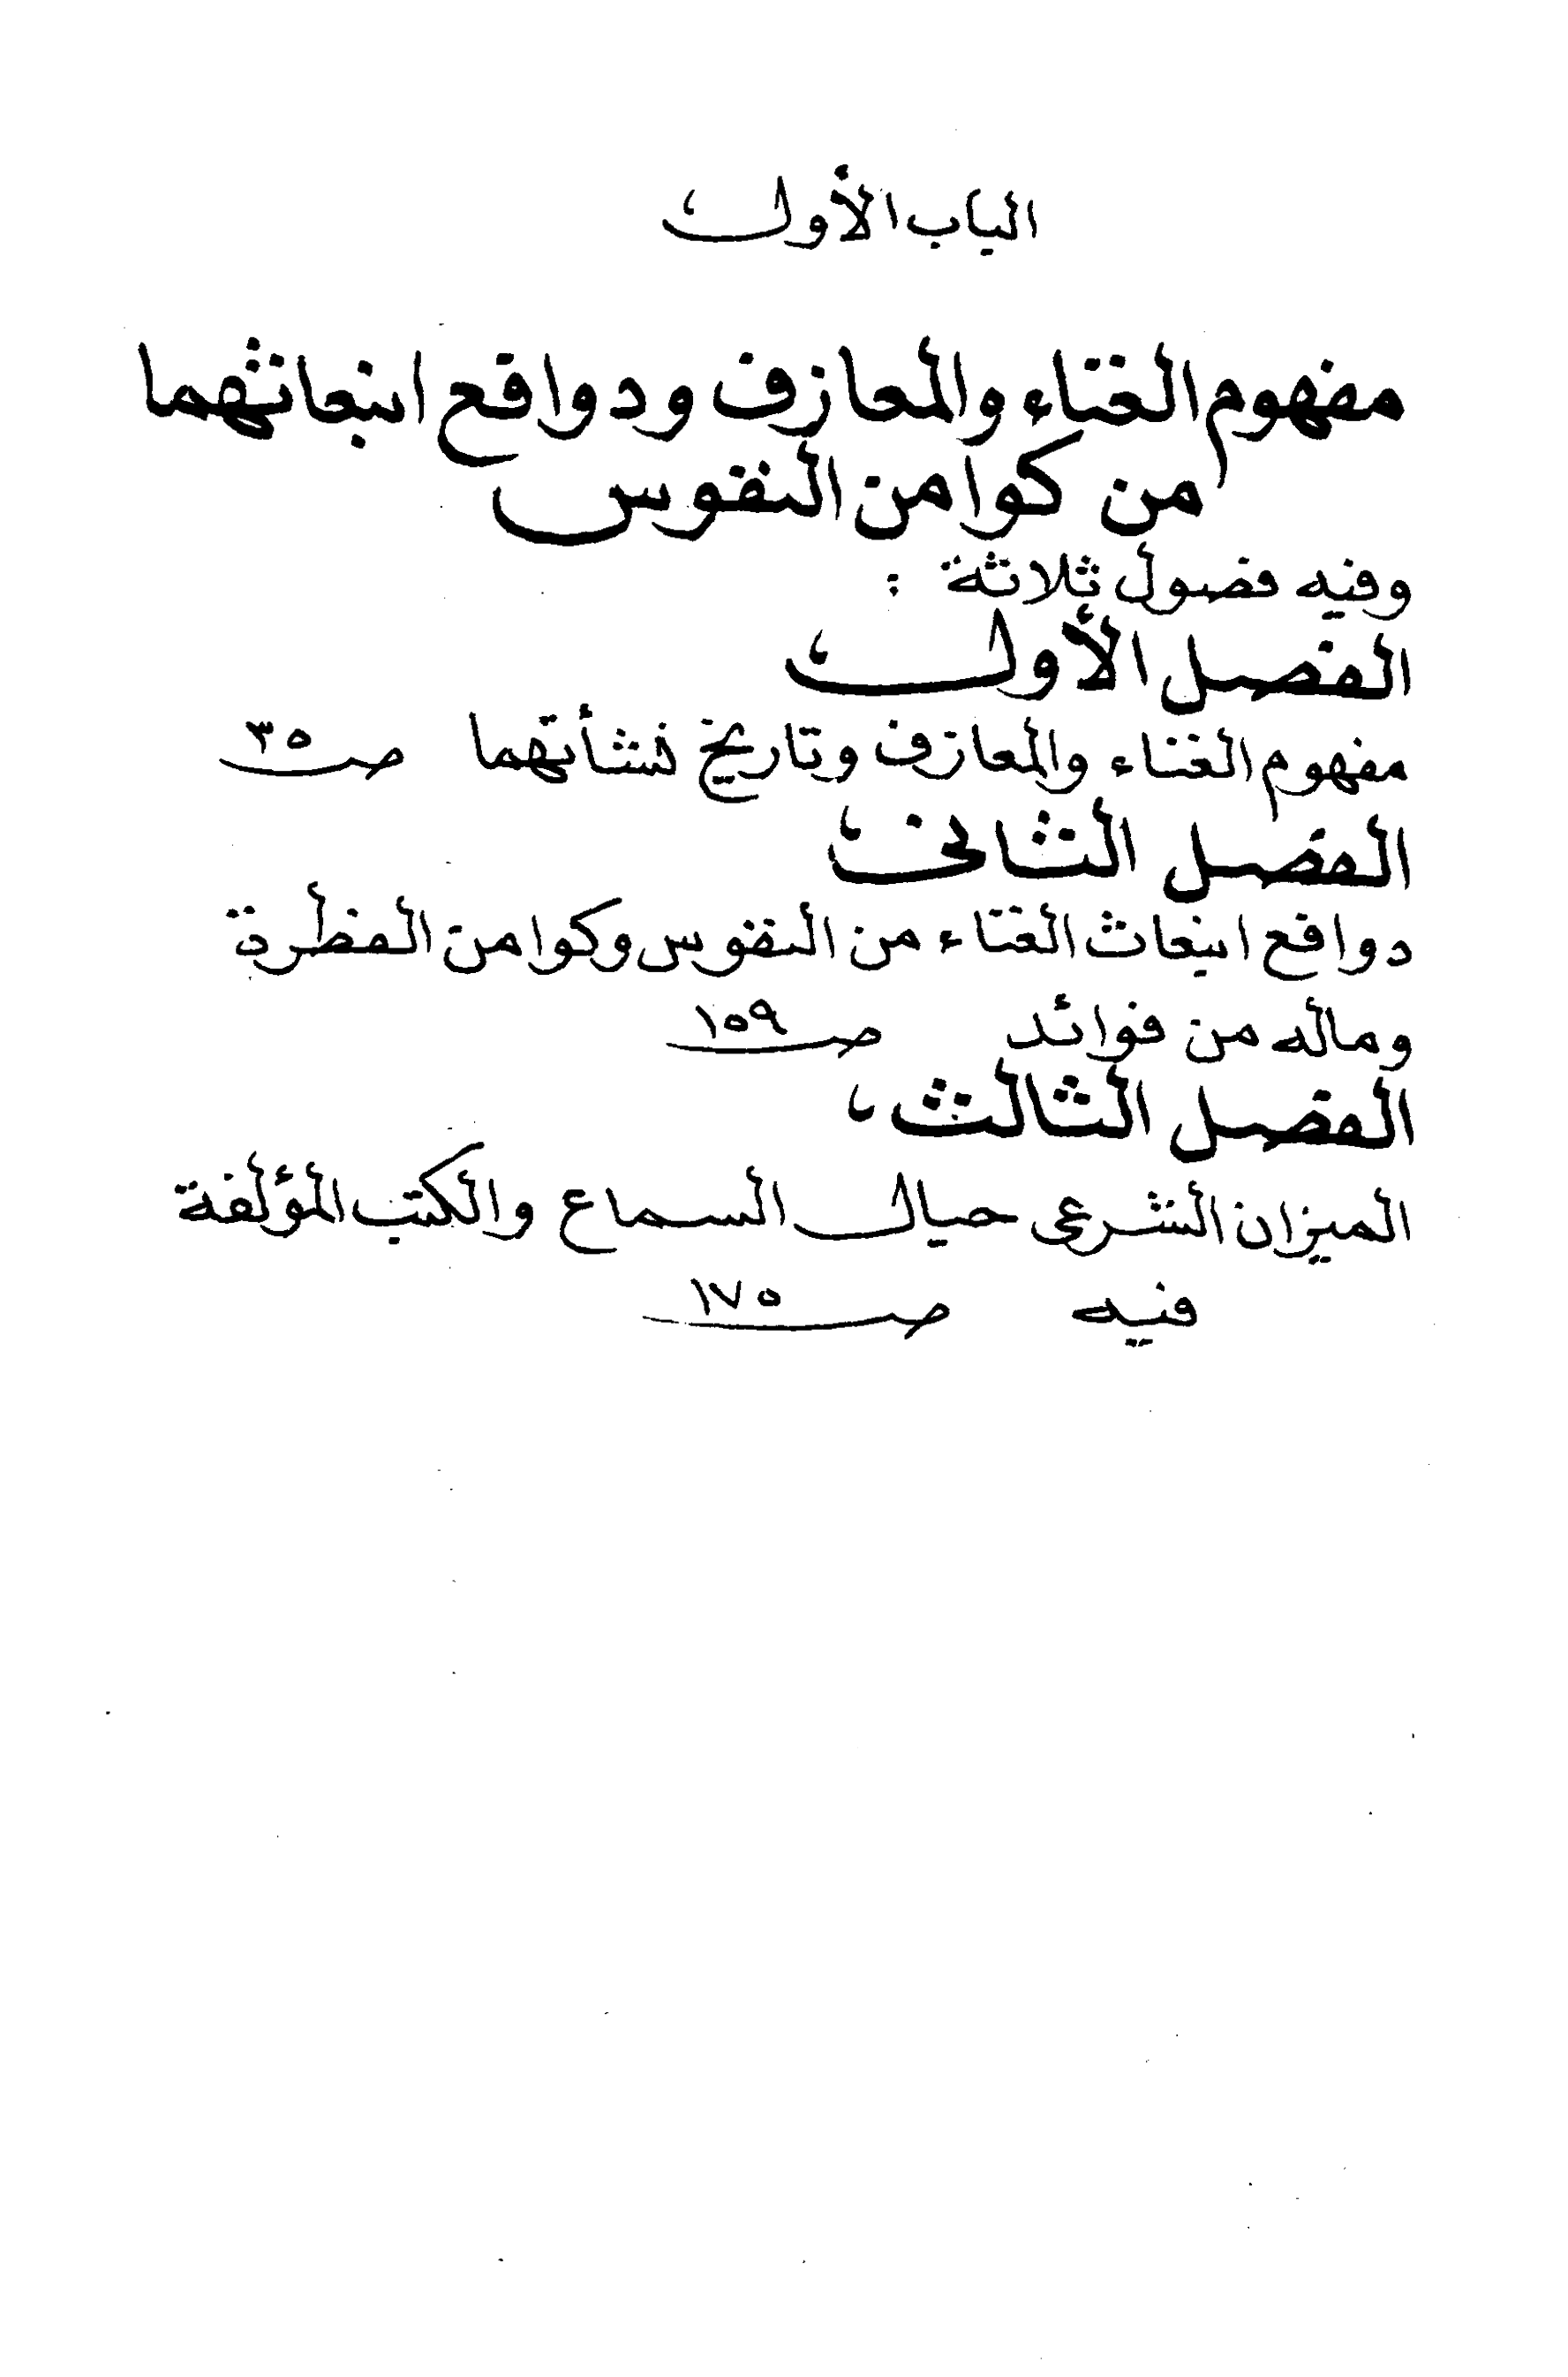 الباب الأول
مفهوم الغناء والمعازف ودوافع انبعاثهما
من كوامن النفوس
وفيه فصول ثلاثة :
الفصل الأول
مفهوم الغناء والمعازف وتاريخ نشأتهما ص ٣٥
الفصل الثاني
دوافع انبعاث الغناء من النفوس وكوامن الفطرة
وماله من فوائد ص ١٥٩
الفصل الثالث ،
الميزان الشرعى حيال السماع والكتب المؤلفة
فيه ص ١٧٥